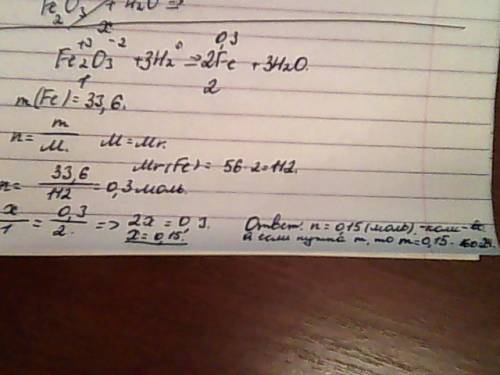 Fe₂O₃ + H₂O ⇒
x 0,3
Fe₂⁺³O₃⁻² + 3H₂⁰ ⇒ 2Fe + 3H₂O.
1 2
m(Fe) = 33,6.
n = m/M. M = Mr.
Mr(Fe) = 56·2 = 112.
n = 33,6/112 = 0,3 моль.
x/1 = 0,3/2. => 2x = 0,3.
x = 0,15.
Ответ: n = 0,15 (моль), - кол-
и если нужна m, то m = 0,15 · 160